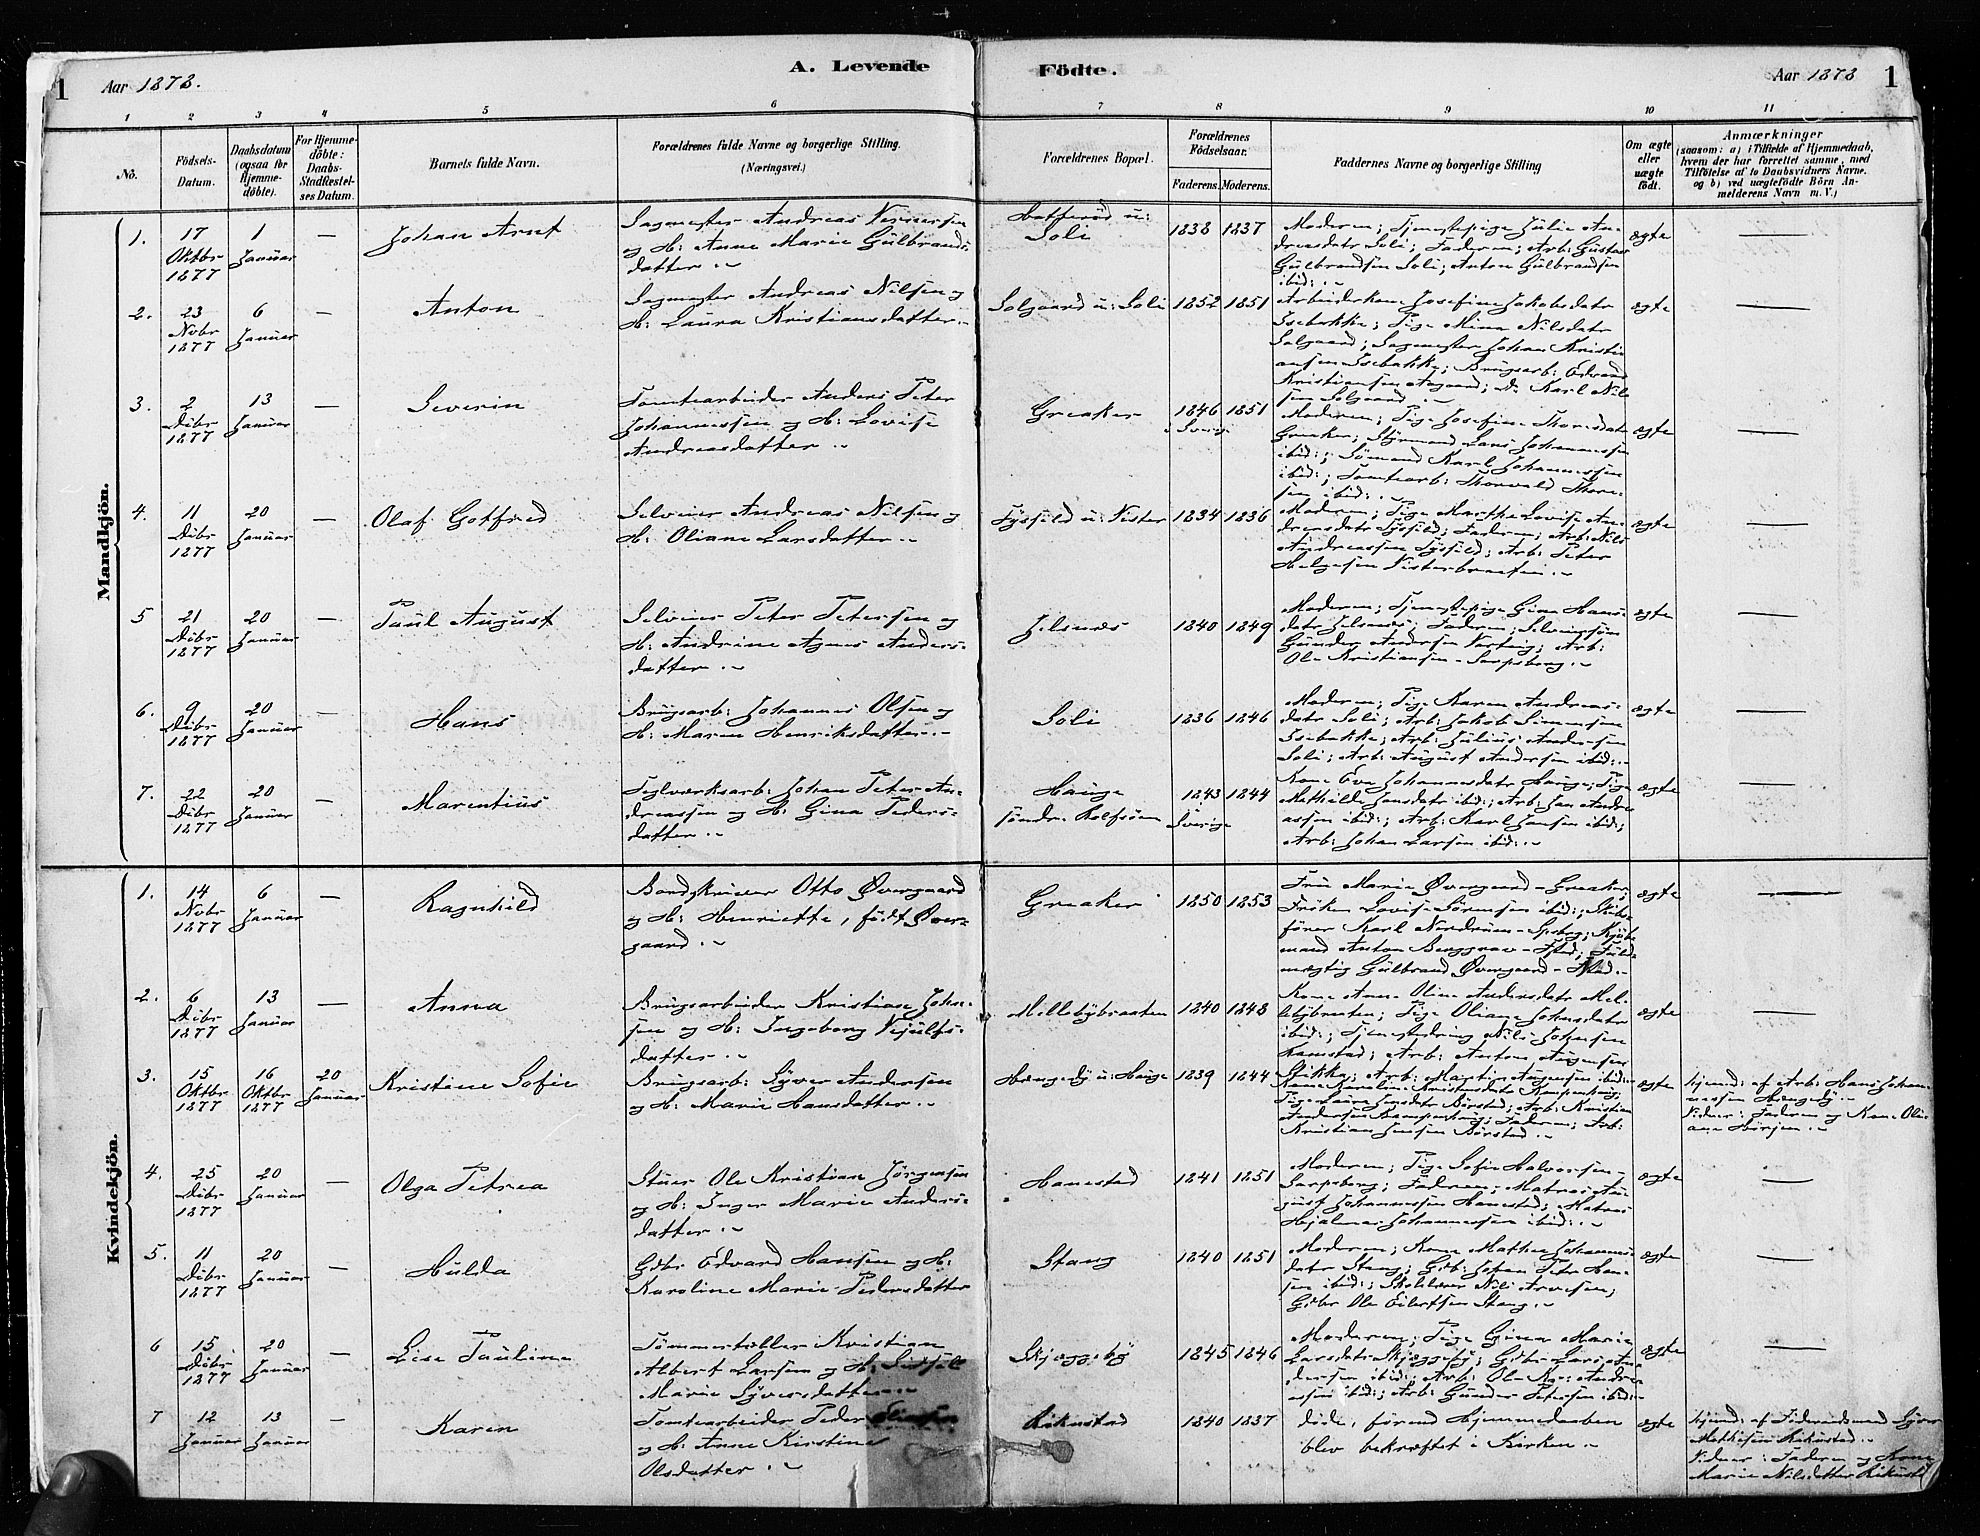 1 Aar 1878. A. Levende Födte. Aar 1878 1
1 2 3 4 5 6 7 8 9 10 11
No. Födsels-Datum. Daabsdatum (ogsaa for Hjemmedöbte). For Hjemmedöbte: Daabs-Stadfæstelses Datum. Barnets fulde Navn. Forældrenes fulde Navne og borgerlige Stilling. (Næringsvei.) Forældrenes Bopæl. Forældrenes Födselsaar. Faderens. Moderens. Faddernes Navne og borgerlige Stilling Om ægte eller uægte födt. Anmærkninger (saasom: a) i Tilfælde af Hjemmedaab, hvem der har forrettet samme, med Tilföielse af to Daabsvidners Navne. og b) ved uægtefödte Börn Anmelderens Navn m.V.)
Mandkjön.
1. 17 Oktbr 1877 1 Januar — Johan Arnt
Sagmester Andreas Vernersen
og H: Anne Marie Gulbrands-
datter .~
Hafferöd u: Soli 1838 1837
Moderen; Tjenestepige Julie An-
dreasdatr Soli; Faderen; Arb: Gustav
Gulbrandsen Soli; Anton Gulbrandsen
ibid: .~
ægte —
2. 23 Novbr 1877 6 Januar — Anton
Sagmester Andreas Nilsen og
H: Laura Kristiansdatter .~
Solgaard u: Soli 1852 1851
Arbeiderkone Josefine Jakobsdatr
Isebakke; Pige Mina Nilsdatr
Solgaard; Sagmester Johan Kristi-
ansen Isebakke; Brugsarb: Edvard
Kristiansen Aagaard; Do Karl Nil-
sen Solgaard .~
ægte —
3. 2 Debr 1877 13 Januar — Severin
Tomtearbeider Anders Peter
Johannessen og H: Lovise
Andreasdatter .~
Greaker 1846 i Sverige 1851
Moderen; Pige Josefine Thorsdatr
Greaker; Styrmand Lars Johannessen
ibid:; Sömand Karl Johannessen
ibid:; Tomtearb: Thorvald Thor-
sen ibid: .~
ægte —
4. 11 Debr 1877 20 Januar — Olaf Gotfred
Selveier Andreas Nilsen og
H: Oliane Larsdatter .~
u: Vister 1834 1836
Moderen; Pige Marthe Lovise An-
dreasdatr; Faderen; Arb: Nils
Andreassen; Arb: Peter
Helgesen .~
ægte —
5 21 Debr 1877 20 Januar — Paul August
Selveier Peter Petersen og
H: Andrine Agnes Anders-
datter .~
Jelsnæs 1840 1849
Moderen; Tjenestepige Gina Hans-
datr Jelsnæs; Faderen; Selveiersön
Gunder Andersen Varteig; Arb:
Ole Kristiansen - Sarpsborg .~
ægte —
6. 9 Debr 1877 20 Januar — Hans
Brugsarb: Johannes Olsen og
H: Maren Henriksdatter .~
Soli 1836 1846
Moderen; Pige Karen Andreas-
datr Soli; Arb: Jakob Simensen
Isebakke; Arb: Julius Andersen
Soli; Arb: August Andersen ibid: .~
ægte —
7. 22 Debr 1877 20 Januar — Marentius
Teglværksarb: Johan Peter An-
dreassen og H: Gina Peders-
datter .~
Hauge söndre Rolfsöen 1843 Sverige 1844
Kone Eva Johannesdatr Hauge; Pige
Mathilde Jansdatr ibid:; Arb: Jan Andre-
assen ibid:; Arb: Karl Jansen ibid:;
Arb: Johan Larsen ibid: .~
ægte —
Kvindekjön.
1. 14 Novbr 1877 6 Januar — Ragnhild
Bordskriver Otto Overgaard
og H: Henriette, födt Over-
gaard .~
Greaker 1850 1853
Frue Marie Overgaard - Greaker;
Fröken Lovise Sörensen ibid:; Skibs-
förer Karl Nordrum - Spsborg; Kjöb-
mand Anton Berggrav - Fstad; Fuld-
mægtig Gulbrand Overgaard - .~
ægte —
2. 6 Debr 1877 13 Januar — Anna
Brugsarbeider Kristian John-
sen og H: Ingeborg
datter .~
Mellebybraaten 1840 1843
Kone Anne Oline Andersdatr Mel-
lebybraaten; Pige Oliane Johnsdatr
ibid:; Tjenestedreng Nils Johnsen
Hanestad; Arb: Anton Augensen
Stikka; Arb: Martin Augensen ibid:
ægte —
3. 15 Oktbr 1877 16 Oktbr 1877 20 Januar Kristine Sofie
Brugsarb: Syver Andersen
og H: Marie Hansdatter .~
u: Hauge 1839 1844
Kone Karoline Kristensdatr;
Pige Laura Jensdatr Börstad; Arb: Kristian
Andersen; Faderen; Arb:
Kristian Jensen Börstad .~
ægte
Hjemd: af Arb: Hans Johan-
nessen .~
Vidner: Faderen og Kone Oli-
ane .~
4. 25 Debr 1877 20 Januar — Olga Petrea
Stuer Ole Kristian Jörgensen
og H: Inger Marie Anders-
datter .~
Hanestad 1841 1851
Moderen; Pige Sofie Halvorsen -
Sarpsborg; Faderen; Matros Au-
gust Johannessen Hanestad; Matros
Hjalmar Johannessen ibid: .~
ægte —
5. 11 Debr 1877 20 Januar — Hulda
Gdbr Edvard Hansen og H:
Karoline Marie Pedersdatter
Stang 1840 1851
Moderen; Kone Mathea Johannes-
datr Stang; Gdb: Johan Peter Han-
sen ibid:; Skolelærer Nils Arvesen;
Gdbr Ole Eilertsen Stang .~
ægte —
6 15 Debr 1877 20 Januar — Lise Pauline
Tömmertæller Kristian
Albert Larsen og H: Sidsel
Marie Syversdatter .~
Skjæggeby 1845 1846
Moderen; Pige Gina Marie
Larsdatr Skjæggeby; Gdbr Lars An-
dersen ibid:; Arb: Ole Kr. Andre-
assen ibid:; Arb: Gunder Petersen ibid: .~
ægte —
7 12 Januar 13 Januar — Karen
Tomtearbeider Peder
og H: Anne Kirstine
Olsdatter .~
Rikustad 1840 1837
döde, förend Hjemmedaaben
blev bekræftet i Kirken .~
ægte
Hjemd: af Föderaadsmand Syver
Mathisen Rikustad .~
Vidner: Faderen og Kone
Marie Nilsdatter Rikustd